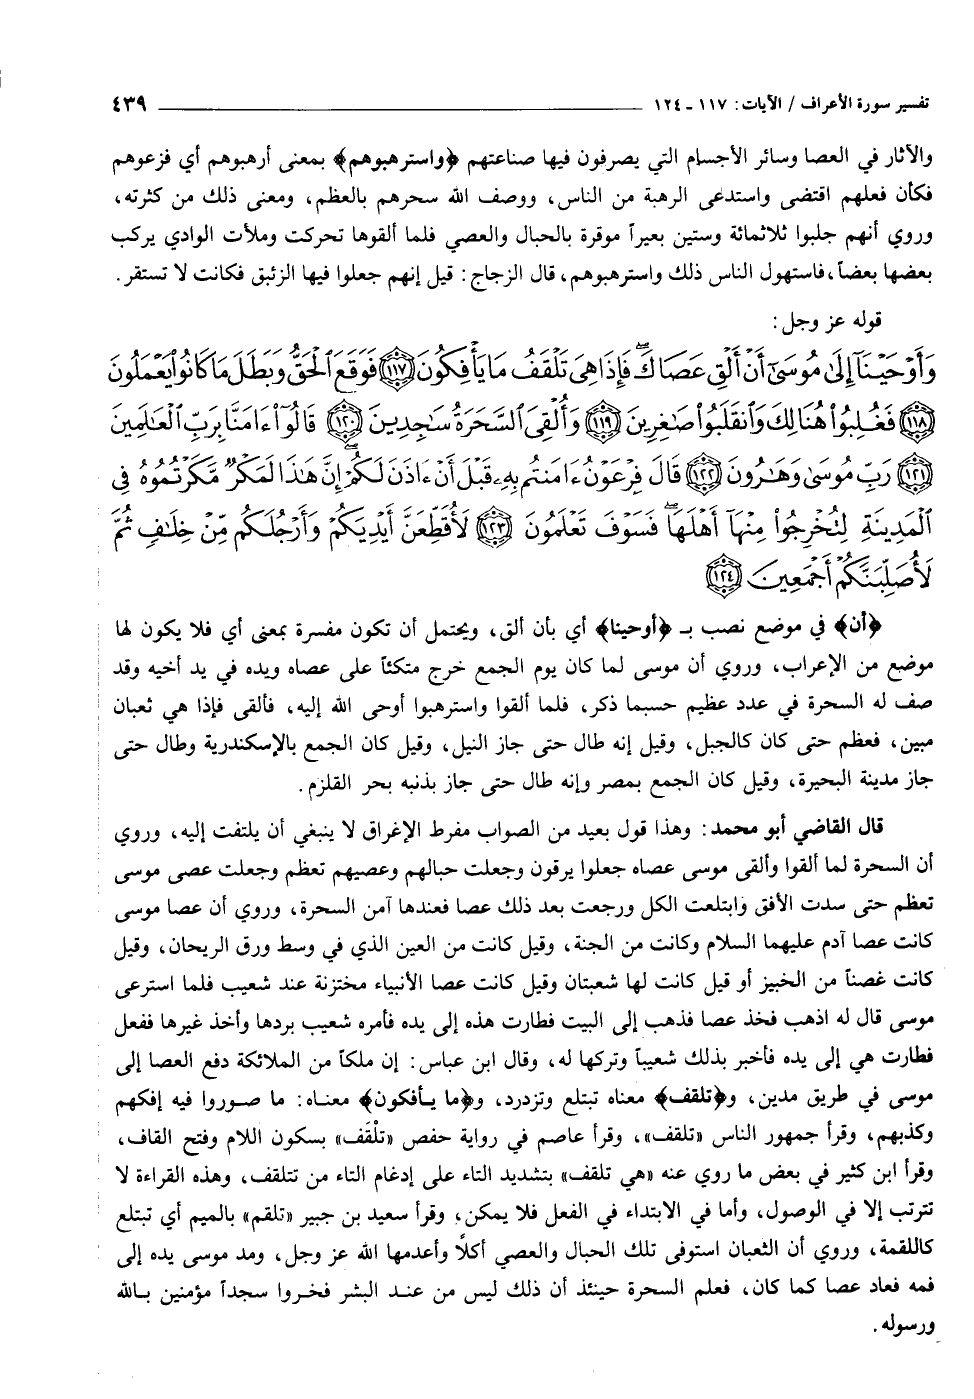 تفسير سورة الأعراف / الآيات: ١١٧ ـ ١٢٤ ٤٣٩
والآثار في العصا وسائر الأجسام التي يصرفون فيها صناعتهم ﴿واسترهبوهم﴾ بمعنى أرهبوهم أي فزعوهم
فكأن فعلهم اقتضى واستدعى الرهبة من الناس، ووصف الله سحرهم بالعظم، ومعنى ذلك من كثرته،
وروي أنهم جلبوا ثلاثمائة وستين بعيراً موقرة بالحبال والعصي فلما ألقوها تحركت وملأت الوادي يركب
بعضها بعضاً، فاستهول الناس ذلك واسترهبوهم، قال الزجاج: قيل إنهم جعلوا فيها الزئبق فكانت لا تستقر.
قوله عز وجل:
وَأَوْحَيْنَآ إِلَىٰ مُوسَىٰٓ أَنْ أَلْقِ عَصَاكَ ۖ فَإِذَا هِىَ تَلْقَفُ مَا يَأْفِكُونَ ﴿١١٧﴾ فَوَقَعَ ٱلْحَقُّ وَبَطَلَ مَا كَانُوا۟ يَعْمَلُونَ
﴿١١٨﴾ فَغُلِبُوا۟ هُنَالِكَ وَٱنقَلَبُوا۟ صَـٰغِرِينَ ﴿١١٩﴾ وَأُلْقِىَ ٱلسَّحَرَةُ سَـٰجِدِينَ ﴿١٢٠﴾ قَالُوٓا۟ ءَامَنَّا بِرَبِّ ٱلْعَـٰلَمِينَ
﴿١٢١﴾ رَبِّ مُوسَىٰ وَهَـٰرُونَ ﴿١٢٢﴾ قَالَ فِرْعَوْنُ ءَامَنتُم بِهِۦ قَبْلَ أَنْ ءَاذَنَ لَكُمْ ۖ إِنَّ هَـٰذَا لَمَكْرٌ مَّكَرْتُمُوهُ فِى
ٱلْمَدِينَةِ لِتُخْرِجُوا۟ مِنْهَآ أَهْلَهَا ۖ فَسَوْفَ تَعْلَمُونَ ﴿١٢٣﴾ لَأُقَطِّعَنَّ أَيْدِيَكُمْ وَأَرْجُلَكُم مِّنْ خِلَـٰفٍ ثُمَّ
لَأُصَلِّبَنَّكُمْ أَجْمَعِينَ ﴿١٢٤﴾
﴿أن﴾ في موضع نصب بـ ﴿أوحينا﴾ أي بأن ألق، ويحتمل أن تكون مفسرة بمعنى أي فلا يكون لها
موضع من الإعراب، وروي أن موسى لما كان يوم الجمع خرج متكئاً على عصاه ويده في يد أخيه وقد
صف له السحرة في عدد عظيم حسبما ذكر، فلما ألقوا واسترهبوا أوحى الله إليه، فألقى فإذا هي ثعبان
مبين، فعظم حتى كان كالجبل، وقيل إنه طال حتى جاز النيل، وقيل كان الجمع بالإسكندرية وطال حتى
جاز مدينة البحيرة، وقيل كان الجمع بمصر وإنه طال حتى جاز بذنبه بحر القلزم.
قال القاضي أبو محمد: وهذا قول بعيد من الصواب مفرط الإغراق لا ينبغي أن يلتفت إليه، وروي
أن السحرة لما ألقوا وألقى موسى عصاه جعلوا يرقون وجعلت حبالهم وعصيهم تعظم وجعلت عصى موسى
تعظم حتى سدت الأفق وابتلعت الكل ورجعت بعد ذلك عصا فعندها آمن السحرة، وروي أن عصا موسى
كانت عصا آدم عليهما السلام وكانت من الجنة، وقيل كانت من العين الذي في وسط ورق الريحان، وقيل
كانت غصناً من الخبيز أو قيل كانت لها شعبتان وقيل كانت عصا الأنبياء مختزنة عند شعيب فلما استرعى
موسى قال له اذهب فخذ عصا فذهب إلى البيت فطارت هذه إلى يده فأمره شعيب بردها وأخذ غيرها ففعل
فطارت هي إلى يده فأخبر بذلك شعيباً وتركها له، وقال ابن عباس: إن ملكاً من الملائكة دفع العصا إلى
موسى في طريق مدين، و﴿تلقف﴾ معناه تبتلع وتزدرد، و﴿ما يـأفكون﴾ معنـاه: ما صـوروا فيه إفكهم
وكذبهم، وقرأ جمهور الناس «تلقف»، وقرأ عاصم في رواية حفص «تلْقَف» بسكون اللام وفتح القاف،
وقرأ ابن كثير في بعض ما روي عنه «هي تلقف» بتشديد التاء على إدغام التاء من تتلقف، وهذه القراءة لا
تترتب إلا في الوصول، وأما في الابتداء في الفعل فلا يمكن، وقرأ سعيد بن جبير «تلقم» بالميم أي تبتلع
كاللقمة، وروي أن الثعبان استوفى تلك الحبال والعصي أكلًا وأعدمها الله عز وجل، ومد موسى يده إلى
فمه فعاد عصا كما كان، فعلم السحرة حينئذ أن ذلك ليس من عنـد البشر فخـروا سجداً مؤمنين بـالله
ورسوله.